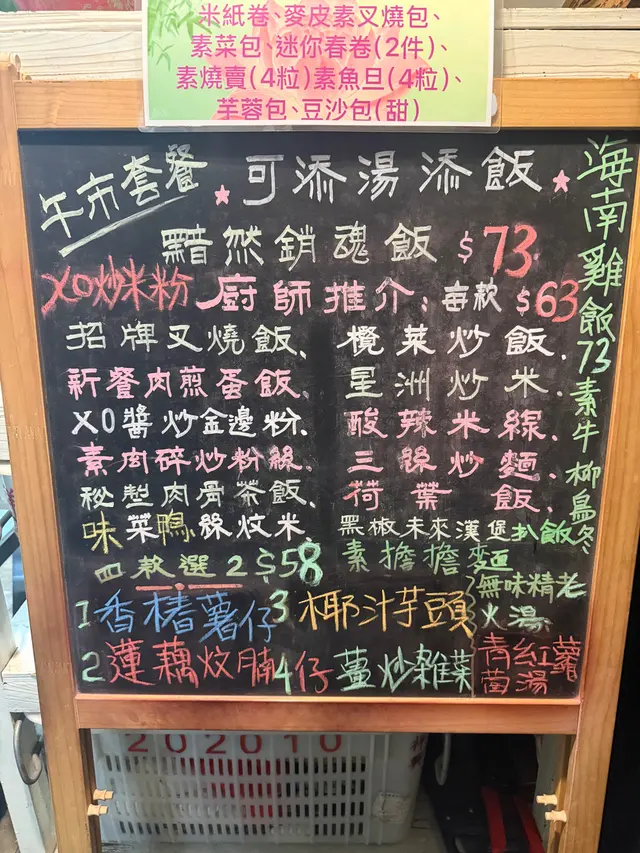 米紙卷、麥皮素叉燒包、
素菜包、迷你春卷(2件)、
素燒賣(4粒)素魚旦(4粒)、
芋蓉包、豆沙包(甜)
午市套餐
可添湯添飯
黯然銷魂飯 $73
XO炒米粉
廚師推介：每款 $63
招牌叉燒飯、
欖菜炒飯、
新餐肉煎蛋飯、
星洲炒米、
XO醬炒金邊粉、
酸辣米線、
素肉碎炒粉絲、
三絲炒麵、
秘製肉骨茶飯、
荷葉飯、
味菜鴨絲炆米
黑椒未來漢堡扒飯
四款選2 $58
素擔擔麵
1 香椿薯仔
3 椰汁芋頭
2 蓮藕炆腩仔
4 薑炒雜菜
無味精老
火湯
青紅蘿蔔
湯
海南雞飯73
素牛柳烏冬
202010